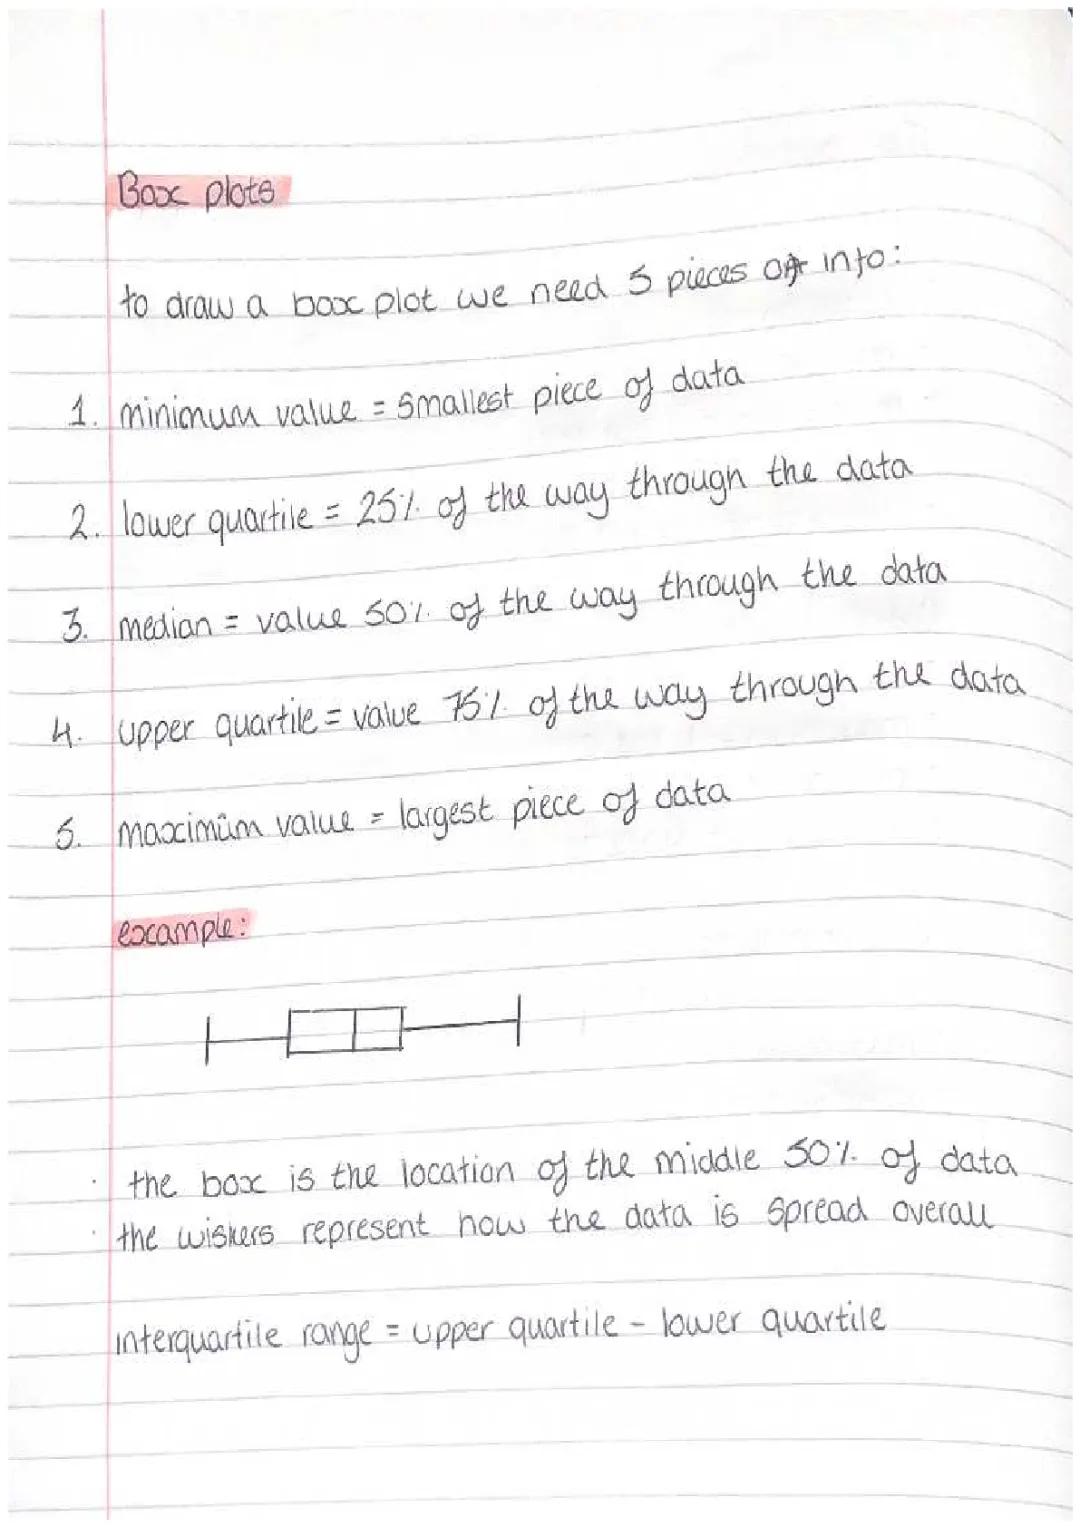 Box plots
to draw a box plot we need 5 pieces of info:
1. minimum value = smallest piece of data
2. lower quartile = 25% of the way through the data
3. median = value 50% of the way through the data
4. upper quartile = value 75% of the way through the data
5. maximum value = largest piece of data
example:
· the box is the location of the middle 50% of data
· the wiskers represent how the data is spread overall
interquartile range = upper quartile - lower quartile